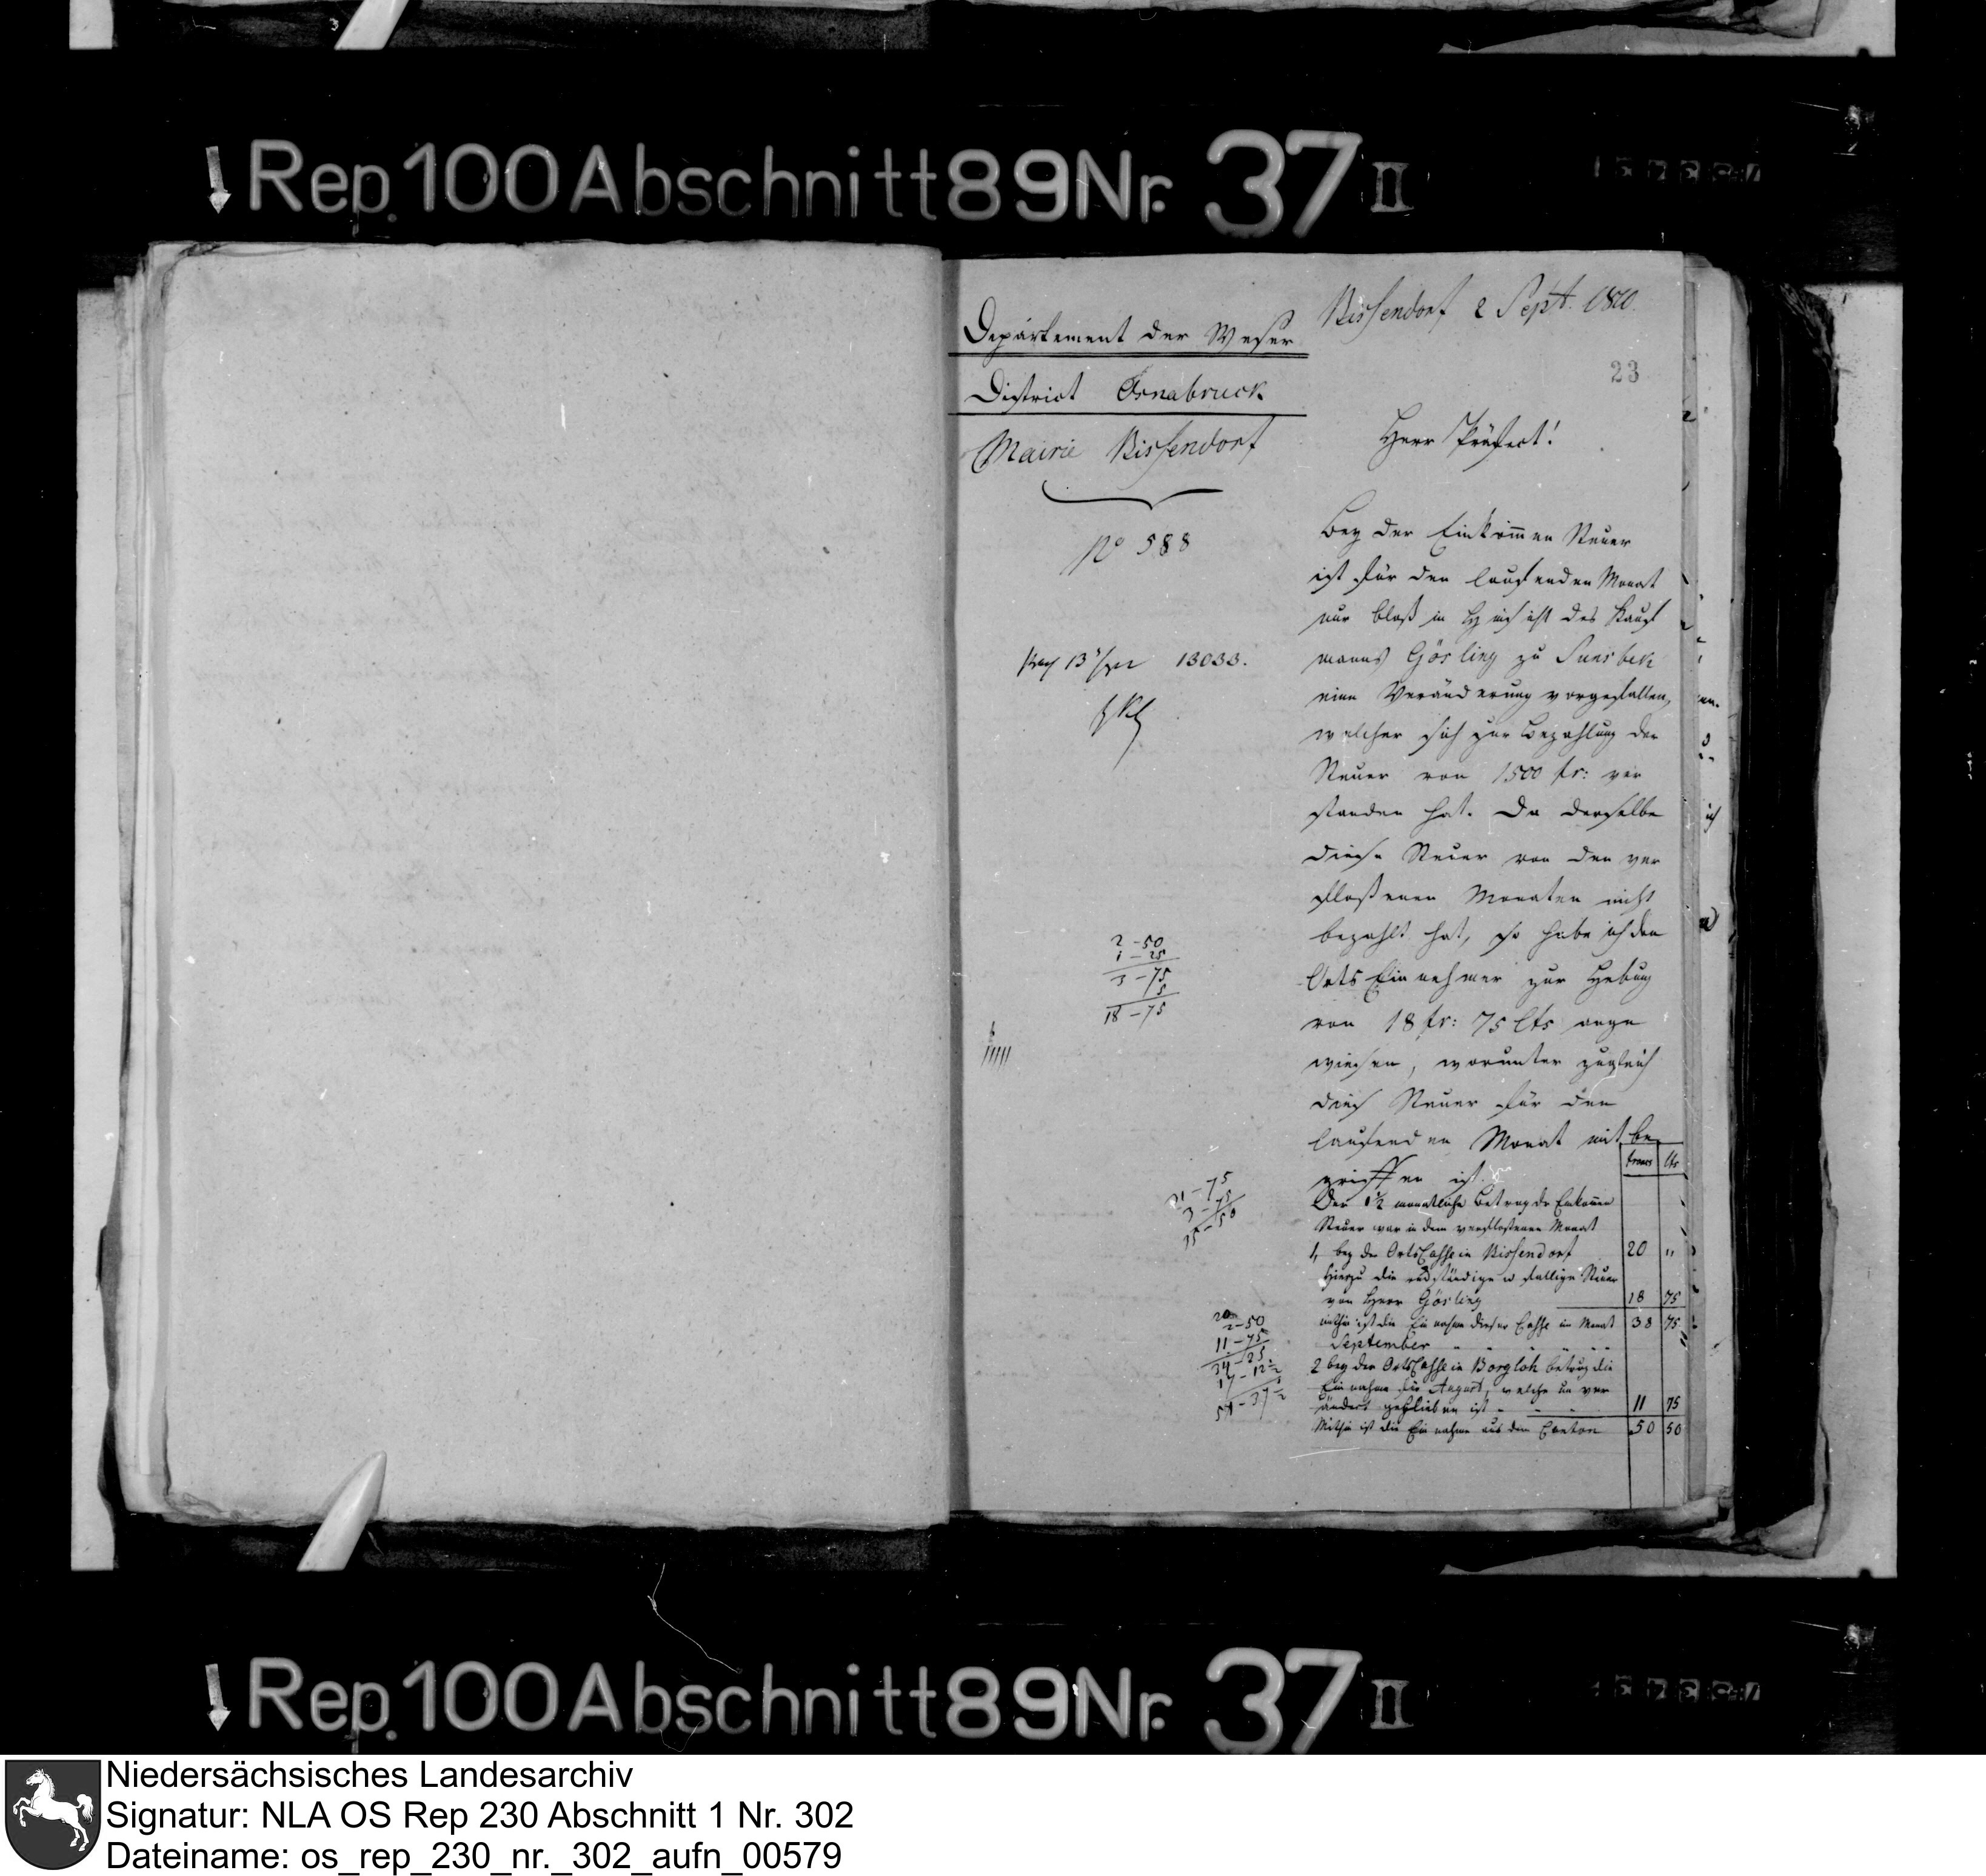 Rep. 100 Abschnitt 89 Nr. 37 II
Departement der Weser
District Osnabruck
Mairie Bissendorf
No 588
13033.
2-50
1-25
3-75
5
18-75
21-75
3-75
25-50
20
2-50
11-75
34-25
17-12½
51-37½
Bissendorf 2 Sept. 1810.
23
Herr Präfect!
Bey der Einkommen Steuer
ist für den laufenden Monat
nur bloß in Hinsicht des Kauf
manns Gösling zu Sunsbek
eine Veränderung vorgefallen,
welcher sich zur Bezahlung der
Steuer von 1500 fr: ver
standen hat. Da derselbe
diese Steuer von den ver
floßenen Monaten nicht
bezahlt hat, so habe ich den
Orts Einnehmer zur Hebung
von 18 fr: 75 Cts ange
wiesen, worunter zugleich
diese Steuer für den
laufenden Monat mit be
griffen ist.
francs Cts
Der 1½ monatliche Betrag der Einkommen
Steuer war in dem verfloßenen Monat
1, bey der Orts Casse in Bissendorf 20 "
Hierzu die rückständige u fällige Steuer
von Herr Gösling 18 75
mithin ist die Einnahme dieser Casse im Monat 38 75
September
2 bey der Orts Casse in Borgloh betrug die
Einnahme für August, welche un ver
ändert geblieben ist 11 75
Mithin ist die Einnahme aus dem Canton 50 50
Rep. 100 Abschnitt 89 Nr. 37 II
Niedersächsisches Landesarchiv
Signatur: NLA OS Rep 230 Abschnitt 1 Nr. 302
Dateiname: os_rep_230_nr._302_aufn_00579